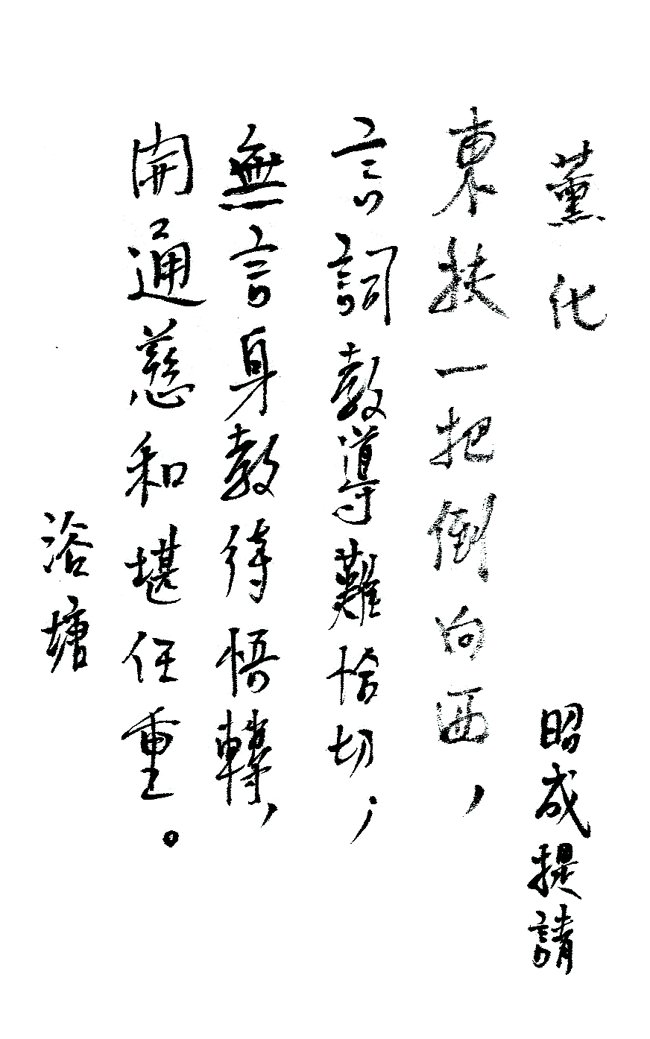 薰化
昭成提請
東扶一把倒向西，
言詞教導難恰切；
無言身教待悟轉，
開通慈和堪任重。
浴塘